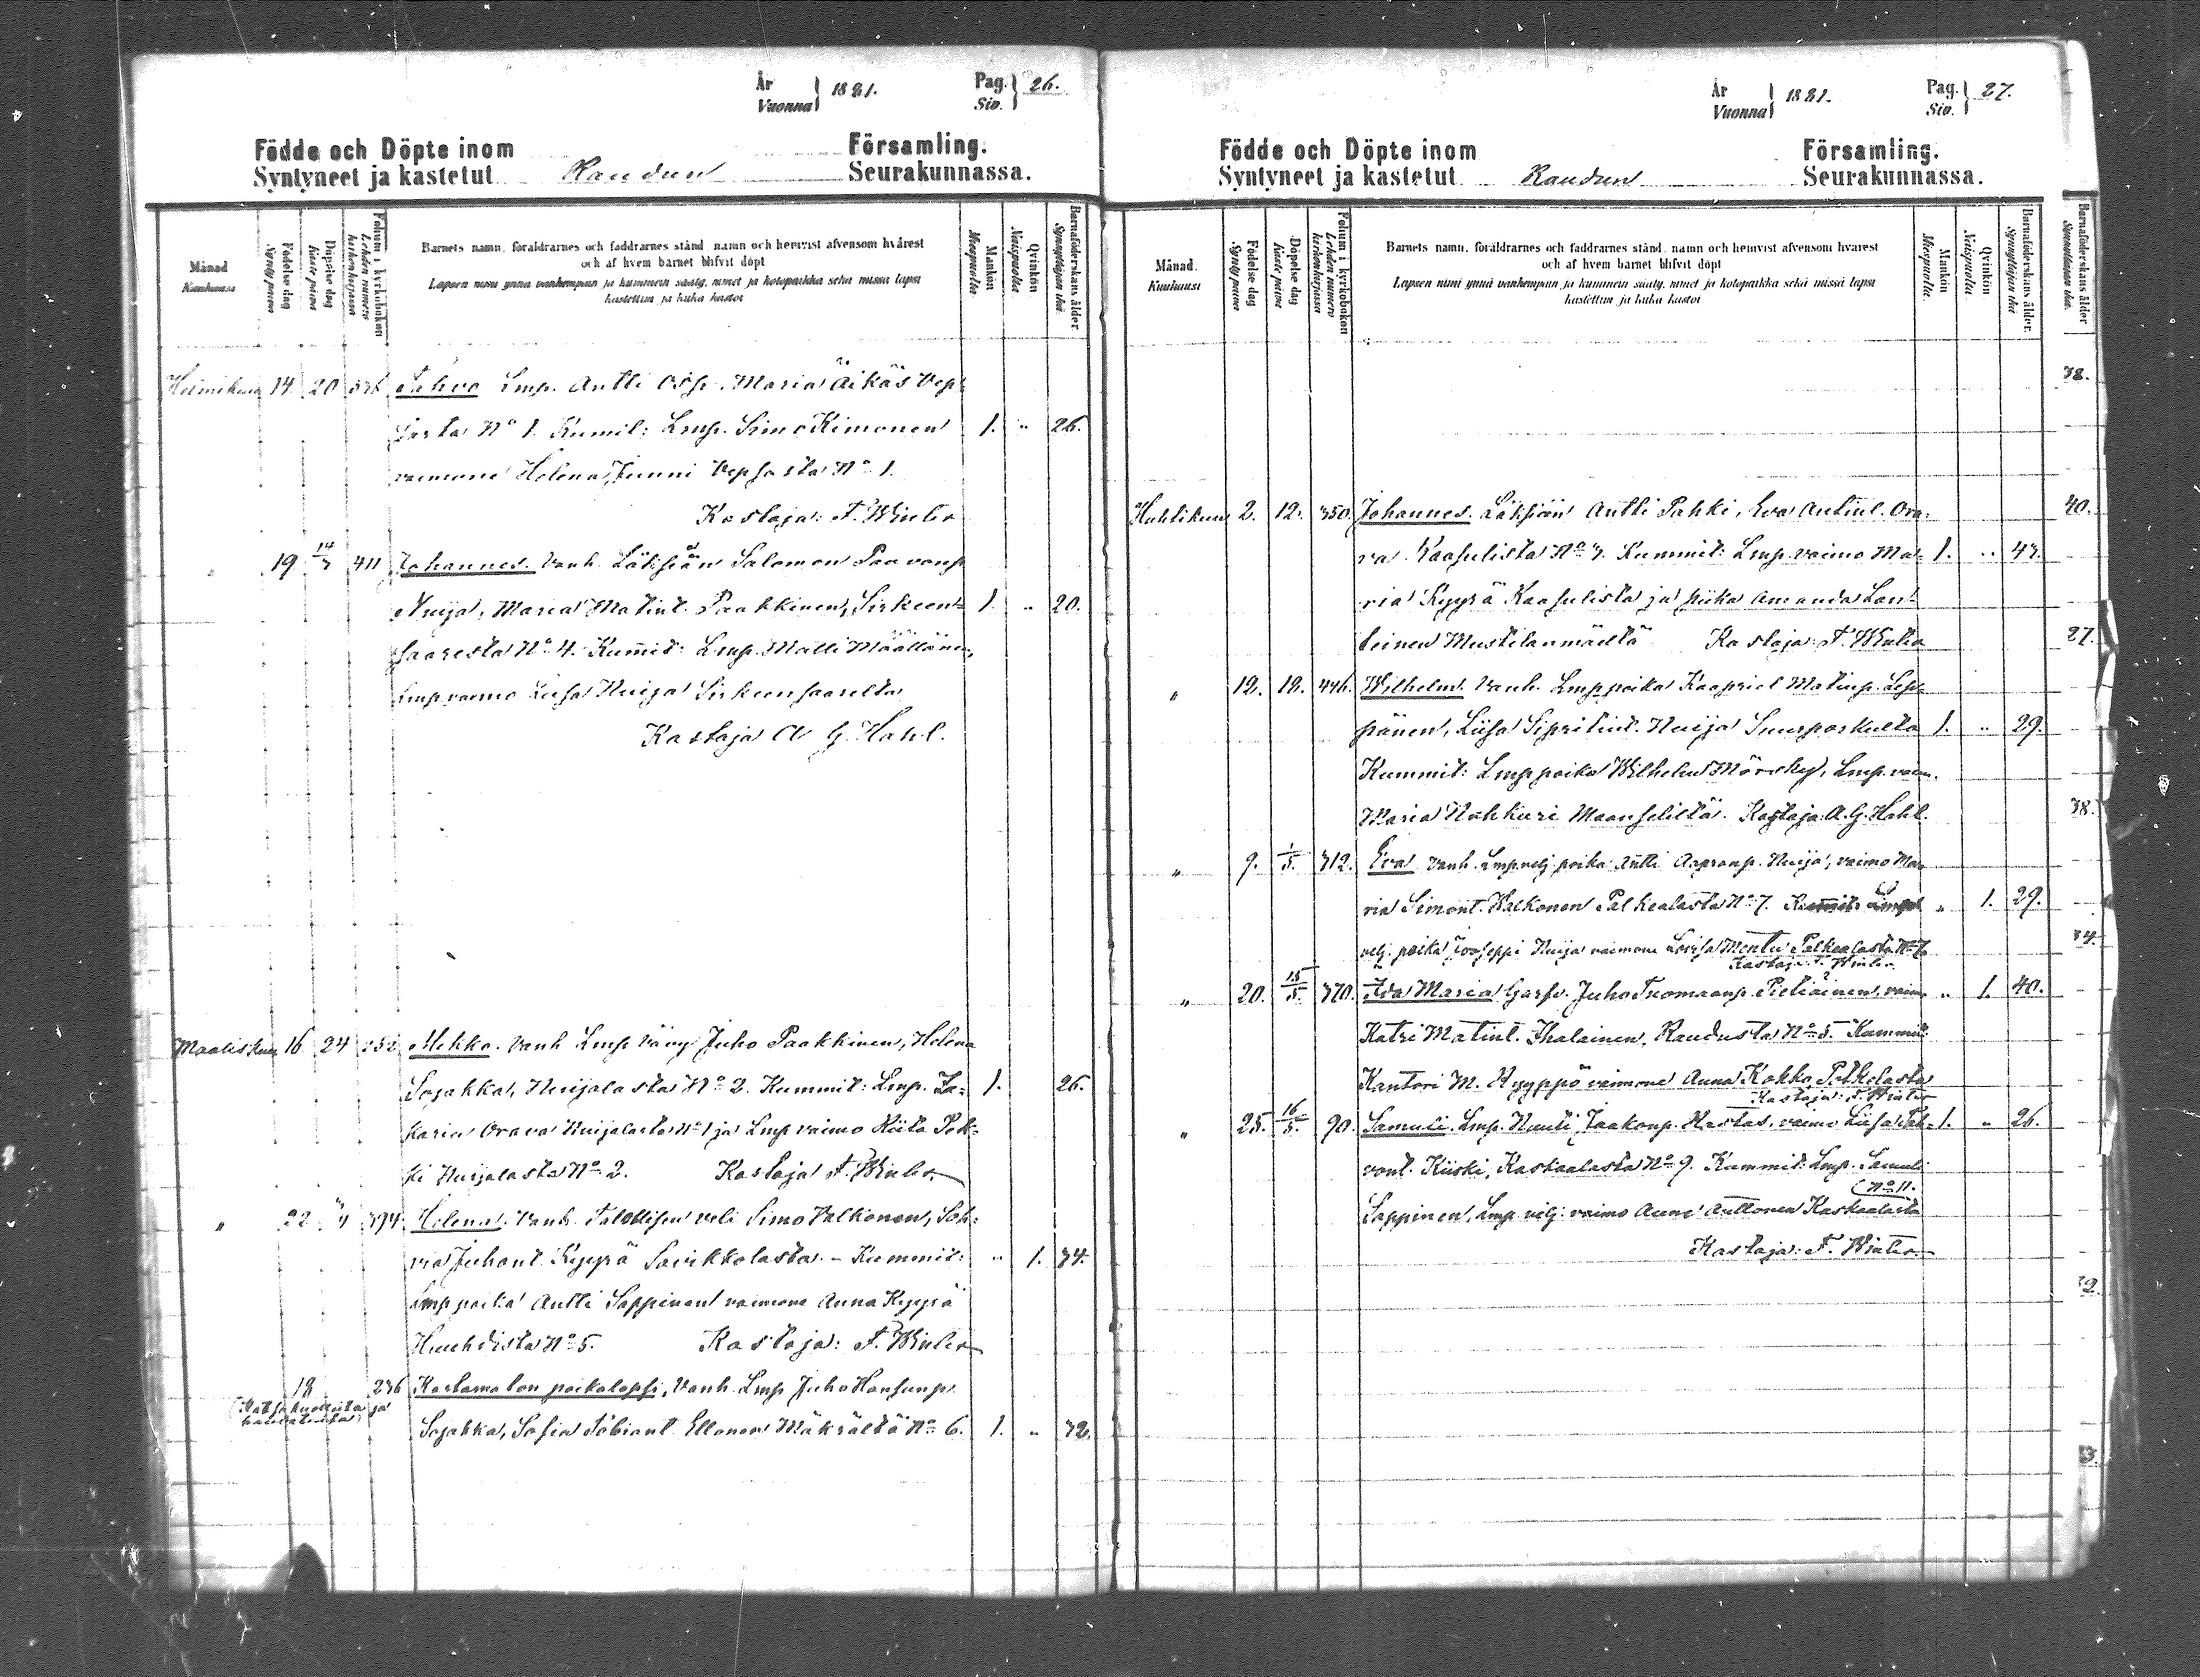 År
Vuonna } 1881.
Pag.
Siv. } 26.
Födde och Döpte inom Församling.
Syntyneet ja kastetut Raudun Seurakunnassa.
Månad
Kuukausi
Födelse dag
Synty päivä
Döpelse dag
Kaste päivä
Folium i kyrkoboken
Lehden numero kirkonkirjassa
Barnets namn, föräldrarnes och faddrarnes stånd, namn och hemvist äfvensom hvarest
och af hvem barnet blifvit döpt
Lapsen nimi ynnä vanhempain ja kummein sääty, nimet ja kotopaikka sekä missä lapsi
kastettiin ja kuka kastoi
Mankön
Miespuolta
Qvinkön
Naispuolta
Barnaföderskans ålder.
Synnyttäjän ikä.
Helmikuu 14 20 Lmp. Antti Maria Äikäs Vep-
sästa No 1. Kumit: Lmp. Simo Kimonen 1. " 26.
vaimone Helena Junni Vepsästa No 1.
Kastaja: F. Winter
" 19 14/3 411 Johannes. Vanh. Läksiän Salomon Paavonp
Nuija, Maria Matint. Paakkinen, Sirkeen- 1. " 20.
saaresta No 4. Kumit: Lmp. Matti Määttänen,
Lmp vaimo Liisa Nuija Sirkeensaarelta
Kastaja A G. Hahl.
Maaliskuu 16 24 252 Mikko. Vanh Lmp Vävy Juho Paakkinen, Helena
Sojakka, Nuijalasta No 2. Kummit: Lmp. Za- 1. 26.
karia Orava Nuijalasta No 1 ja Lmp vaimo Riita Pok-
ki Nuijalasta No 2. Kastaja F. Winter
" 22 394 Helena. Vanh. Talollisen veli Simo Valkonen, Soh-
via Juhont. Kyyrä Savikkolasta. - Kummit: " 1. 34.
Lmp poika Antti Sappinen vaimone Anna Kyyrä
Huuhdista No 5. Kastaja: F. Winter
18 236 Kastamaton poikalapsi, Vanh. Lmp Juho Hansunp.
ja
Sojakka, Sofia Tobiant. Ellonen Mäkrältä No 6. 1. " 32.
År
Vuonna } 1881.
Pag.
Siv. } 27.
Födde och Döpte inom Församling.
Syntyneet ja kastetut Raudun Seurakunnassa.
Månad.
Kuukausi
Födelse dag
Synty päivä
Döpelse dag
Kaste päivä
Folium i kyrkoboken
Lehden numero kirkonkirjassa
Barnets namn, föräldrarnes och faddrarnes stånd, namn och hemvist äfvensom hvarest
och af hvem barnet blifvit döpt
Lapsen nimi ynnä vanhempain ja kummein sääty, nimet ja kotopaikka sekä missä lapsi
kastettiin ja kuka kastoi
Mankön
Miespuolta
Qvinkön
Naispuolta
Barnaföderskans ålder.
Synnyttäjän ikä
Barnaföderskans ålder
Synnyttäjän ikä.
38.
Huhtikuu 2. 12. 350. Johannes. Läksiän Antti Pahki, Eva Antint. Ora- 40.
va Kaasulista No 3. Kummit: Lmp. vaimo Ma- 1. " 43.
ria Kyyrä Kaasulista ja piika Amanda Lan-
teinen Mustilanmäeltä Kastaja: F. Winter 27.
" 12. 12. 446. Wilhelm. Vanh. Lmp poika Kaapriel Matinp. Lep-
pänen, Liisa Sipritint. Nuija Suurporkulta 1. " 29.
Kummit: Lmp poika Wilhelm Mörsky, Lmp. vaim.
Maria Nuhkuri Maanselältä. Kastaja: A. G. Hahl. 38.
" 9. 1/5. 312. Eva Vanh. Lmp velj. poika Antti Aapramp. Nuija, vaimo Ma-
ria Simont. Valkonen Palkealasta No 7. " 1. 29.
velj. poika Jooseppi Nuija vaimone Lovisa Montu Palkealasta No 7. 34.
Kastaja: F. Winter
" 20. 15/5. 370. Ida Maria Garfv. Juho Tuomaanp. Pietiäinen, vaim. " 1. 40.
Katri Matint. Ihalainen, Raudusta No 5. Kummit
Kantori M. Hyyppö vaimone Anna Kokko Palkealasta
Kastaja: F. Winter
" 25. 16/5. 90. Samuli. Lmp. Nuuti Jaakonp. Hastas, vaimo Liisa Pah- 1. " 26.
vont. Kiiski, Kaskaalasta No 9. Kummit: Lmp. Samuli
(No 11.
Sappinen, Lmp. velj: vaimo Anna Anttonen Kaskaalasta
Kastaja: F. Winter